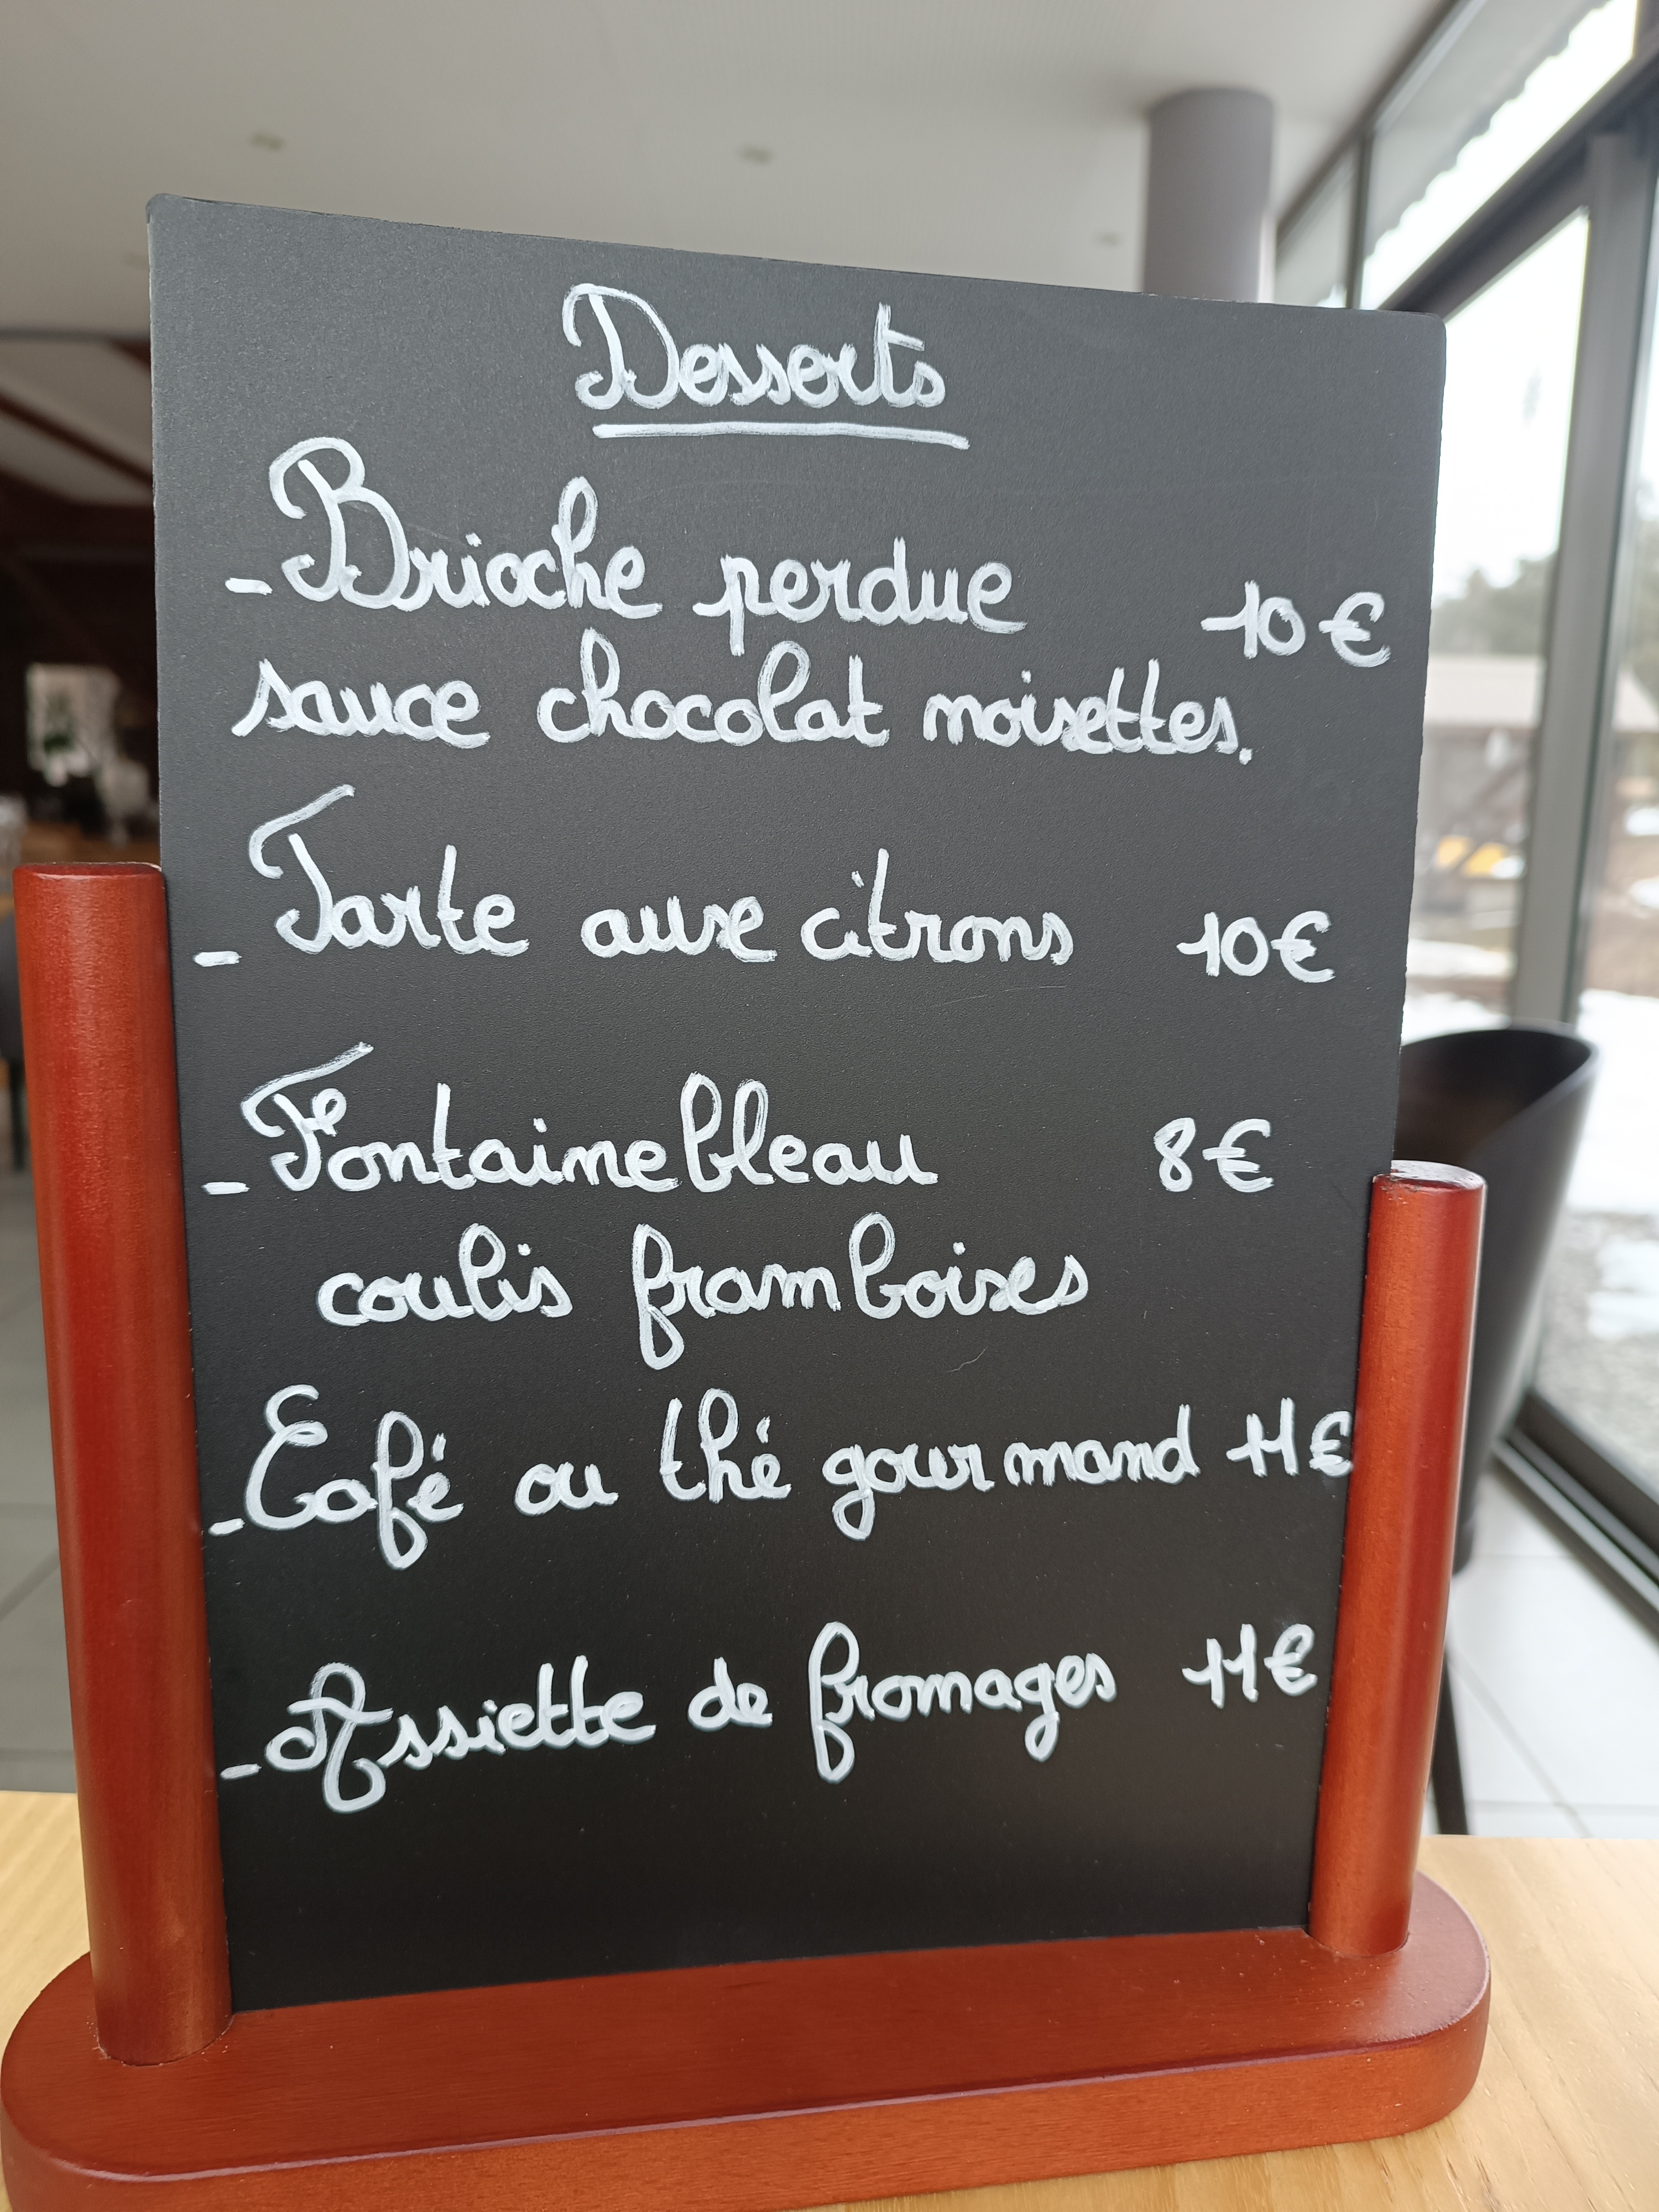 Desserts
- Brioche perdue 10€
sauce chocolat noisettes.
- Tarte aux citrons 10€
- Fontainebleau 8€
coulis framboises
- Café ou thé gourmand 11€
- Assiette de fromages 11€